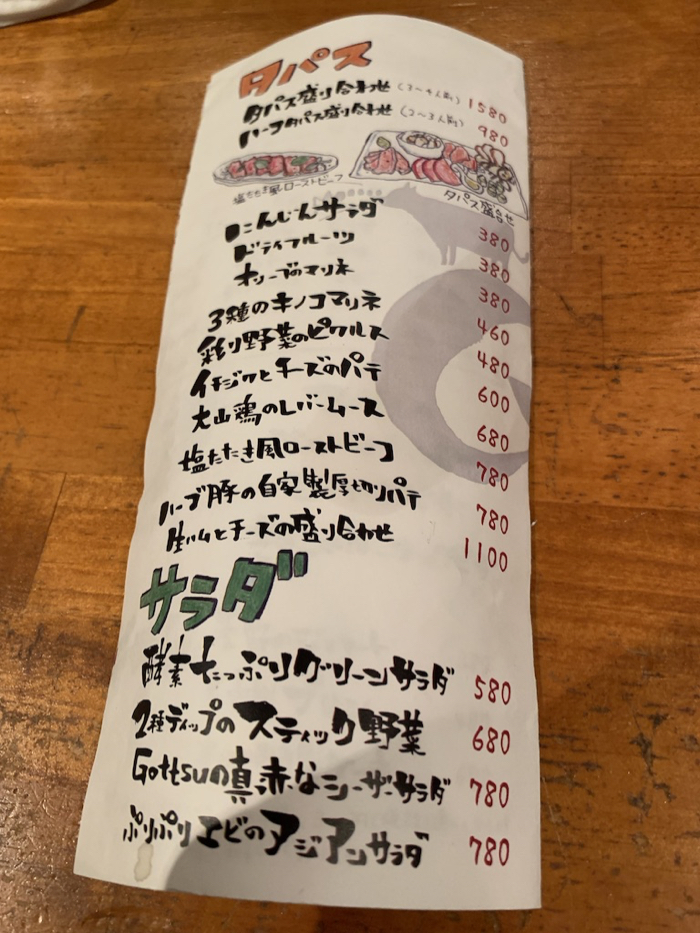 タパス
タパス盛り合わせ (3〜4人前) 1580
ハーフタパス盛り合わせ (2〜3人前) 980
塩たたき風ローストビーフ
タパス盛合せ
にんじんサラダ 380
ドライフルーツ 380
オリーブのマリネ 380
3種のキノコマリネ 460
彩り野菜のピクルス 480
イチジクとチーズのパテ 600
大山鶏のレバームース 680
塩たたき風ローストビーフ 780
ハーブ豚の自家製厚切りパテ 780
生ハムとチーズの盛り合わせ 1100
サラダ
酵素たっぷりグリーンサラダ 580
2種ディップのスティック野菜 680
Gottsuの真赤なシーザーサラダ 780
ぷりぷりエビのアジアンサラダ 780